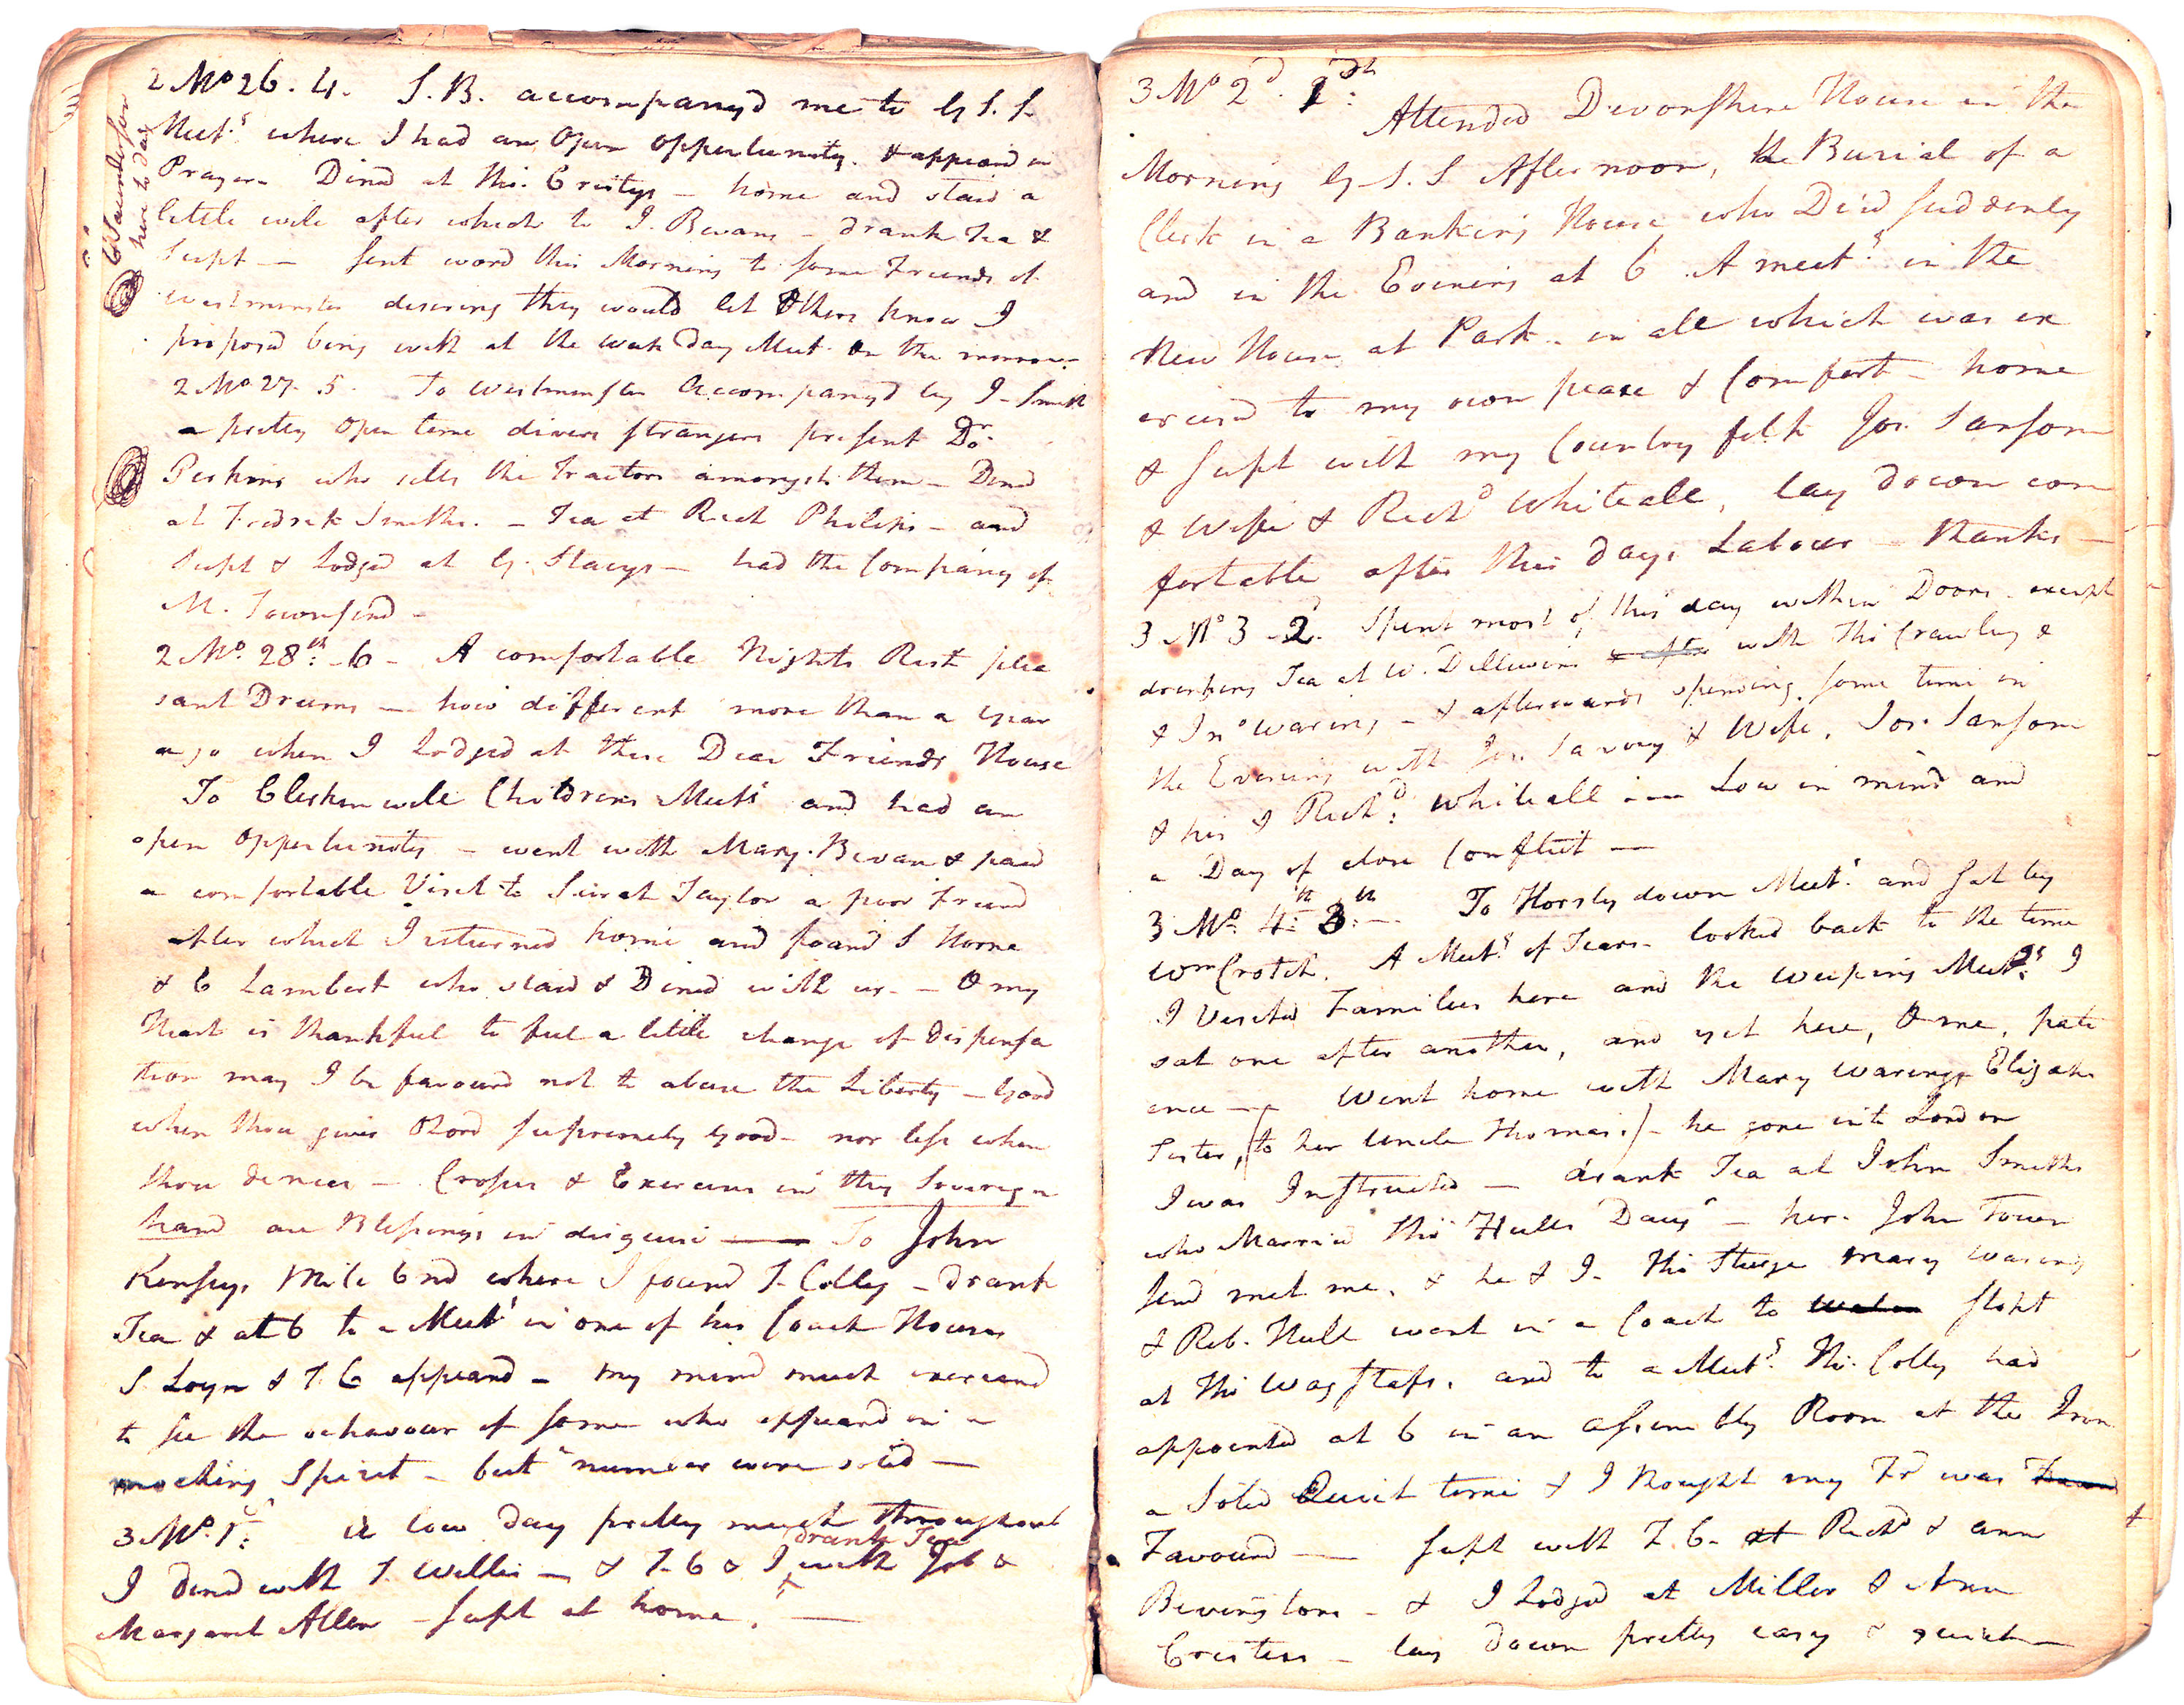 2 Mo 26. 4. S.B. accompanyd me to G.S.S.
Meetg where I had an Open Oppertunity. & appeard in
Prayer - Dined at Tho. Cristys - home and staid a
little wile after which to J. Bevans - drank Tea &
Supt — Sent word this Morning to some Friends of
Westminster desireing they would let Others know I
proposd being with at the week Day Meet. on the morrow -
2 Mo 27. 5. To Westminster Accompanyd by J. Smith
a pretty open time divers strangers present Dr.
Perkins who sells the Tractors amongst them - Dined
at Fredrik Smiths. - Tea at Rich Philips - and
Supt & Lodgd at G. Stacys - had the Company of
M. Townsend -
2 Mo. 28th. 6 - A comfortable Nights Rest plea
sant Dreams — how different more than a year
ago when I Lodged at these Dear Friends House
To Clerkenwell Childrens Meetg and had an
open oppertunity - went with Mary Bevan & paid
a comfortable Visit to Sarah Taylor a poor Friend
after which I returned home and found S Horne
& C Lambert who staid & Dined with us - O my
Heart is thankful to feel a little change of dispensa
tion may I be favourd not to abuse the Liberty - Good
when thou gives O Lord supremely Good - nor less when
thou denies - Crosses & Exercises in thy Sovereign
hand are Blessings in disguise — To John
Kinseys Mile End where I found T. Colley - drank
Tea & at 6 to a Meetg in one of his Coach Houses
S. Loyn & T. C appeard - my mind much exercised
to see the behavour of some who appeard in a
mocking Spirit - but number were solid —
3 Mo. 1. A low day pretty much throughout
drank Tea
I dined with T. Willis — & T. C & I with Job &
Margaret Allen - Supt at home. —
C Saunderson
here to day
3 Mo 2d. 1st.
Attended Devonshire House in the
Morning G.S.S Afternoon, the Burial of a
Clerk in a Bankers House who Died suddenly
and in the Evening at 6 A meetg. in the
New House at Park - in all which was ex
ercised to my own peace & Comfort - home
& Supt with my Country folk Jos. Sansom
& Wife & Richd Whiteall, lay down com
fortable after this days Labour - thanks -
3 Mo 3. 2d. Spent most of this day within Doors except
drinking Tea at W. Dillwins with Tho Crawley &
& Jno Waring - & afterwards spending some time in
the Evening with Jos. Savory & Wife, Jos. Sansom
& his & Richd. Whiteall — Low in mind and
a Day of close Conflict —
3 Mo. 4th. 3th. - To Horsly down Meetg. and sat by
Wm Crotch. A Meetg. of Tears - looked back to the time
I Visited Families here and the weeping Meetgs. I
sat one after another, and yet here, O me, pati
ence — Went home with Mary Warings Elizabs
Sister, (to her Uncle Thomas.) - he gone into London
I was Instructed — drank Tea at John Smiths
who Married Tho Hulls Daugr - her. John Town
send met me, & he & I - Tho Sturge Mary Waring
& Reb. Hull went in a Coach to stopt
at Tho Wagstafs, and to a Meetg. Tho. Colly had
appointed at 6 in an Assembly Room at the
a Solid Quiet time & I thought my Fd was
Favourd — Supt with T. C. at Richd & Ann
Bevingtons - & I Lodged at Miller & Ann
Cristess - lay down pretty easy & quiet —